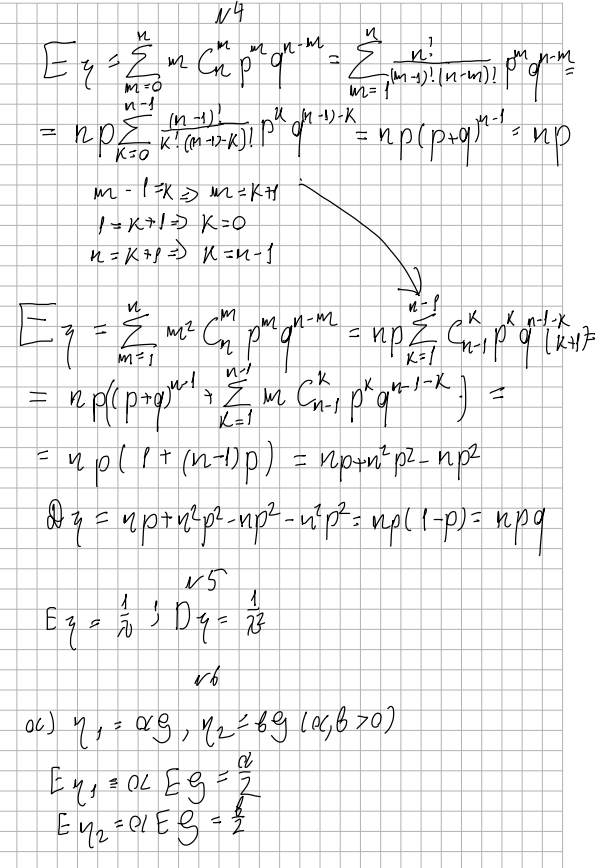 №4
Eη = ∑_{m=0}^{n} m C_n^m p^m q^{n-m} = ∑_{m=1}^{n} n!/((m-1)!(n-m)!) p^m q^{n-m} =
= np ∑_{k=0}^{n-1} (n-1)!/(k!((n-1)-k)!) p^k q^{(n-1)-k} = np(p+q)^{n-1} = np
m-1=k ⇒ m=k+1
1=k+1 ⇒ k=0
n=k+1 ⇒ k=n-1
Eη = ∑_{m=1}^{n} m² C_n^m p^m q^{n-m} = np ∑_{k=1}^{n-1} C_{n-1}^k p^k q^{n-1-k} (k+1) =
= np((p+q)^{n-1} + ∑_{k=1}^{n-1} m C_{n-1}^k p^k q^{n-1-k}) =
= np(1+(n-1)p) = np+n²p²-np²
Dη = np+n²p²-np²-n²p² = np(1-p) = npq
№5
Eη = 1/λ ; Dη = 1/λ²
№6
a) η₁ = aξ, η₂ = bξ (a,b>0)
Eη₁ = aEξ = a/2
Eη₂ = aEξ = b/2